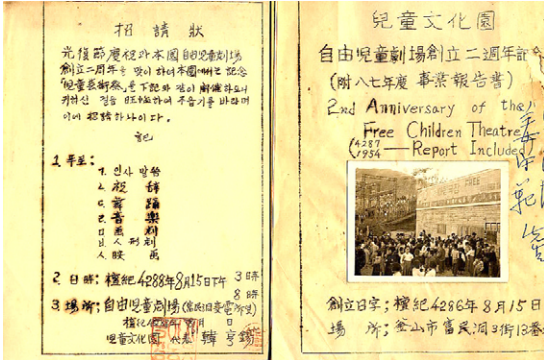 招請狀
光復節慶祝과 本園 自由兒童劇場
創立二周年을 맞이하여 本園에서는 記念
"兒童藝術祭"를 下記와 같이 開催하오니
바라며
이에 招請하나이다.
1. 순서:
ㄱ. 인사 말씀
ㄴ. 祝辞
ㄷ. 舞踊
ㄹ. 音樂
ㅁ. 童劇
ㅂ. 人形劇
ㅅ. 映畵
2. 日時: 檀紀4288年8月15日下午 3時
8時
3. 場所: 自由兒童劇場
兒童文化園 代表 韓亨錫
兒童文化園
自由兒童劇場創立二週年記
(附八七年度 事業報告書)
2nd Anniversary of the
Free Children Theatre
(4287
1954 — Report Included)
創立日字; 檀紀4286年8月15日
場 所; 釜山市富民洞3街13番